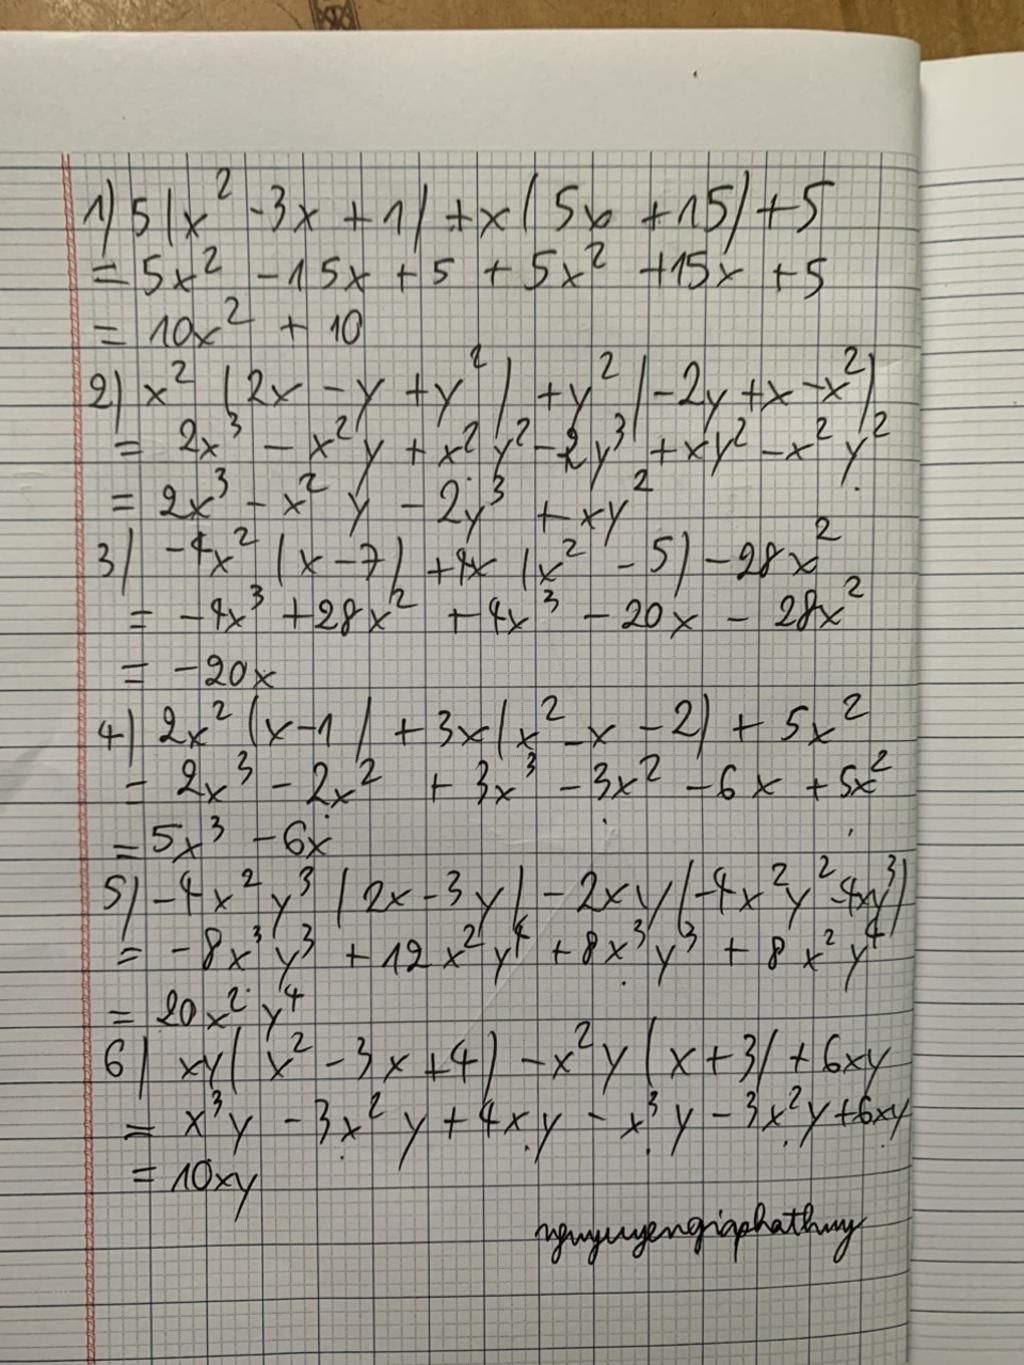 1) 5(x² - 3x + 1) + x(5x + 15) + 5
= 5x² - 15x + 5 + 5x² + 15x + 5
= 10x² + 10
2) x² (2x - y + y²) + y² (-2y + x - x²)
= 2x³ - x²y + x²y² - 2y³ + xy² - x²y²
= 2x³ - x²y - 2y³ + xy²
3) -4x² (x - 7) + 4x (x² - 5) - 28x²
= -4x³ + 28x² + 4x³ - 20x - 28x²
= -20x
4) 2x² (x - 1) + 3x(x² - x - 2) + 5x²
= 2x³ - 2x² + 3x³ - 3x² - 6x + 5x²
= 5x³ - 6x
5) -4x²y³ (2x - 3y) - 2xy(-4x²y² - 4xy³)
= -8x³y³ + 12x²y⁴ + 8x³y³ + 8x²y⁴
= 20x²y⁴
6) xy(x² - 3x + 4) - x²y(x + 3) + 6xy
= x³y - 3x²y + 4xy - x³y - 3x²y + 6xy
= 10xy